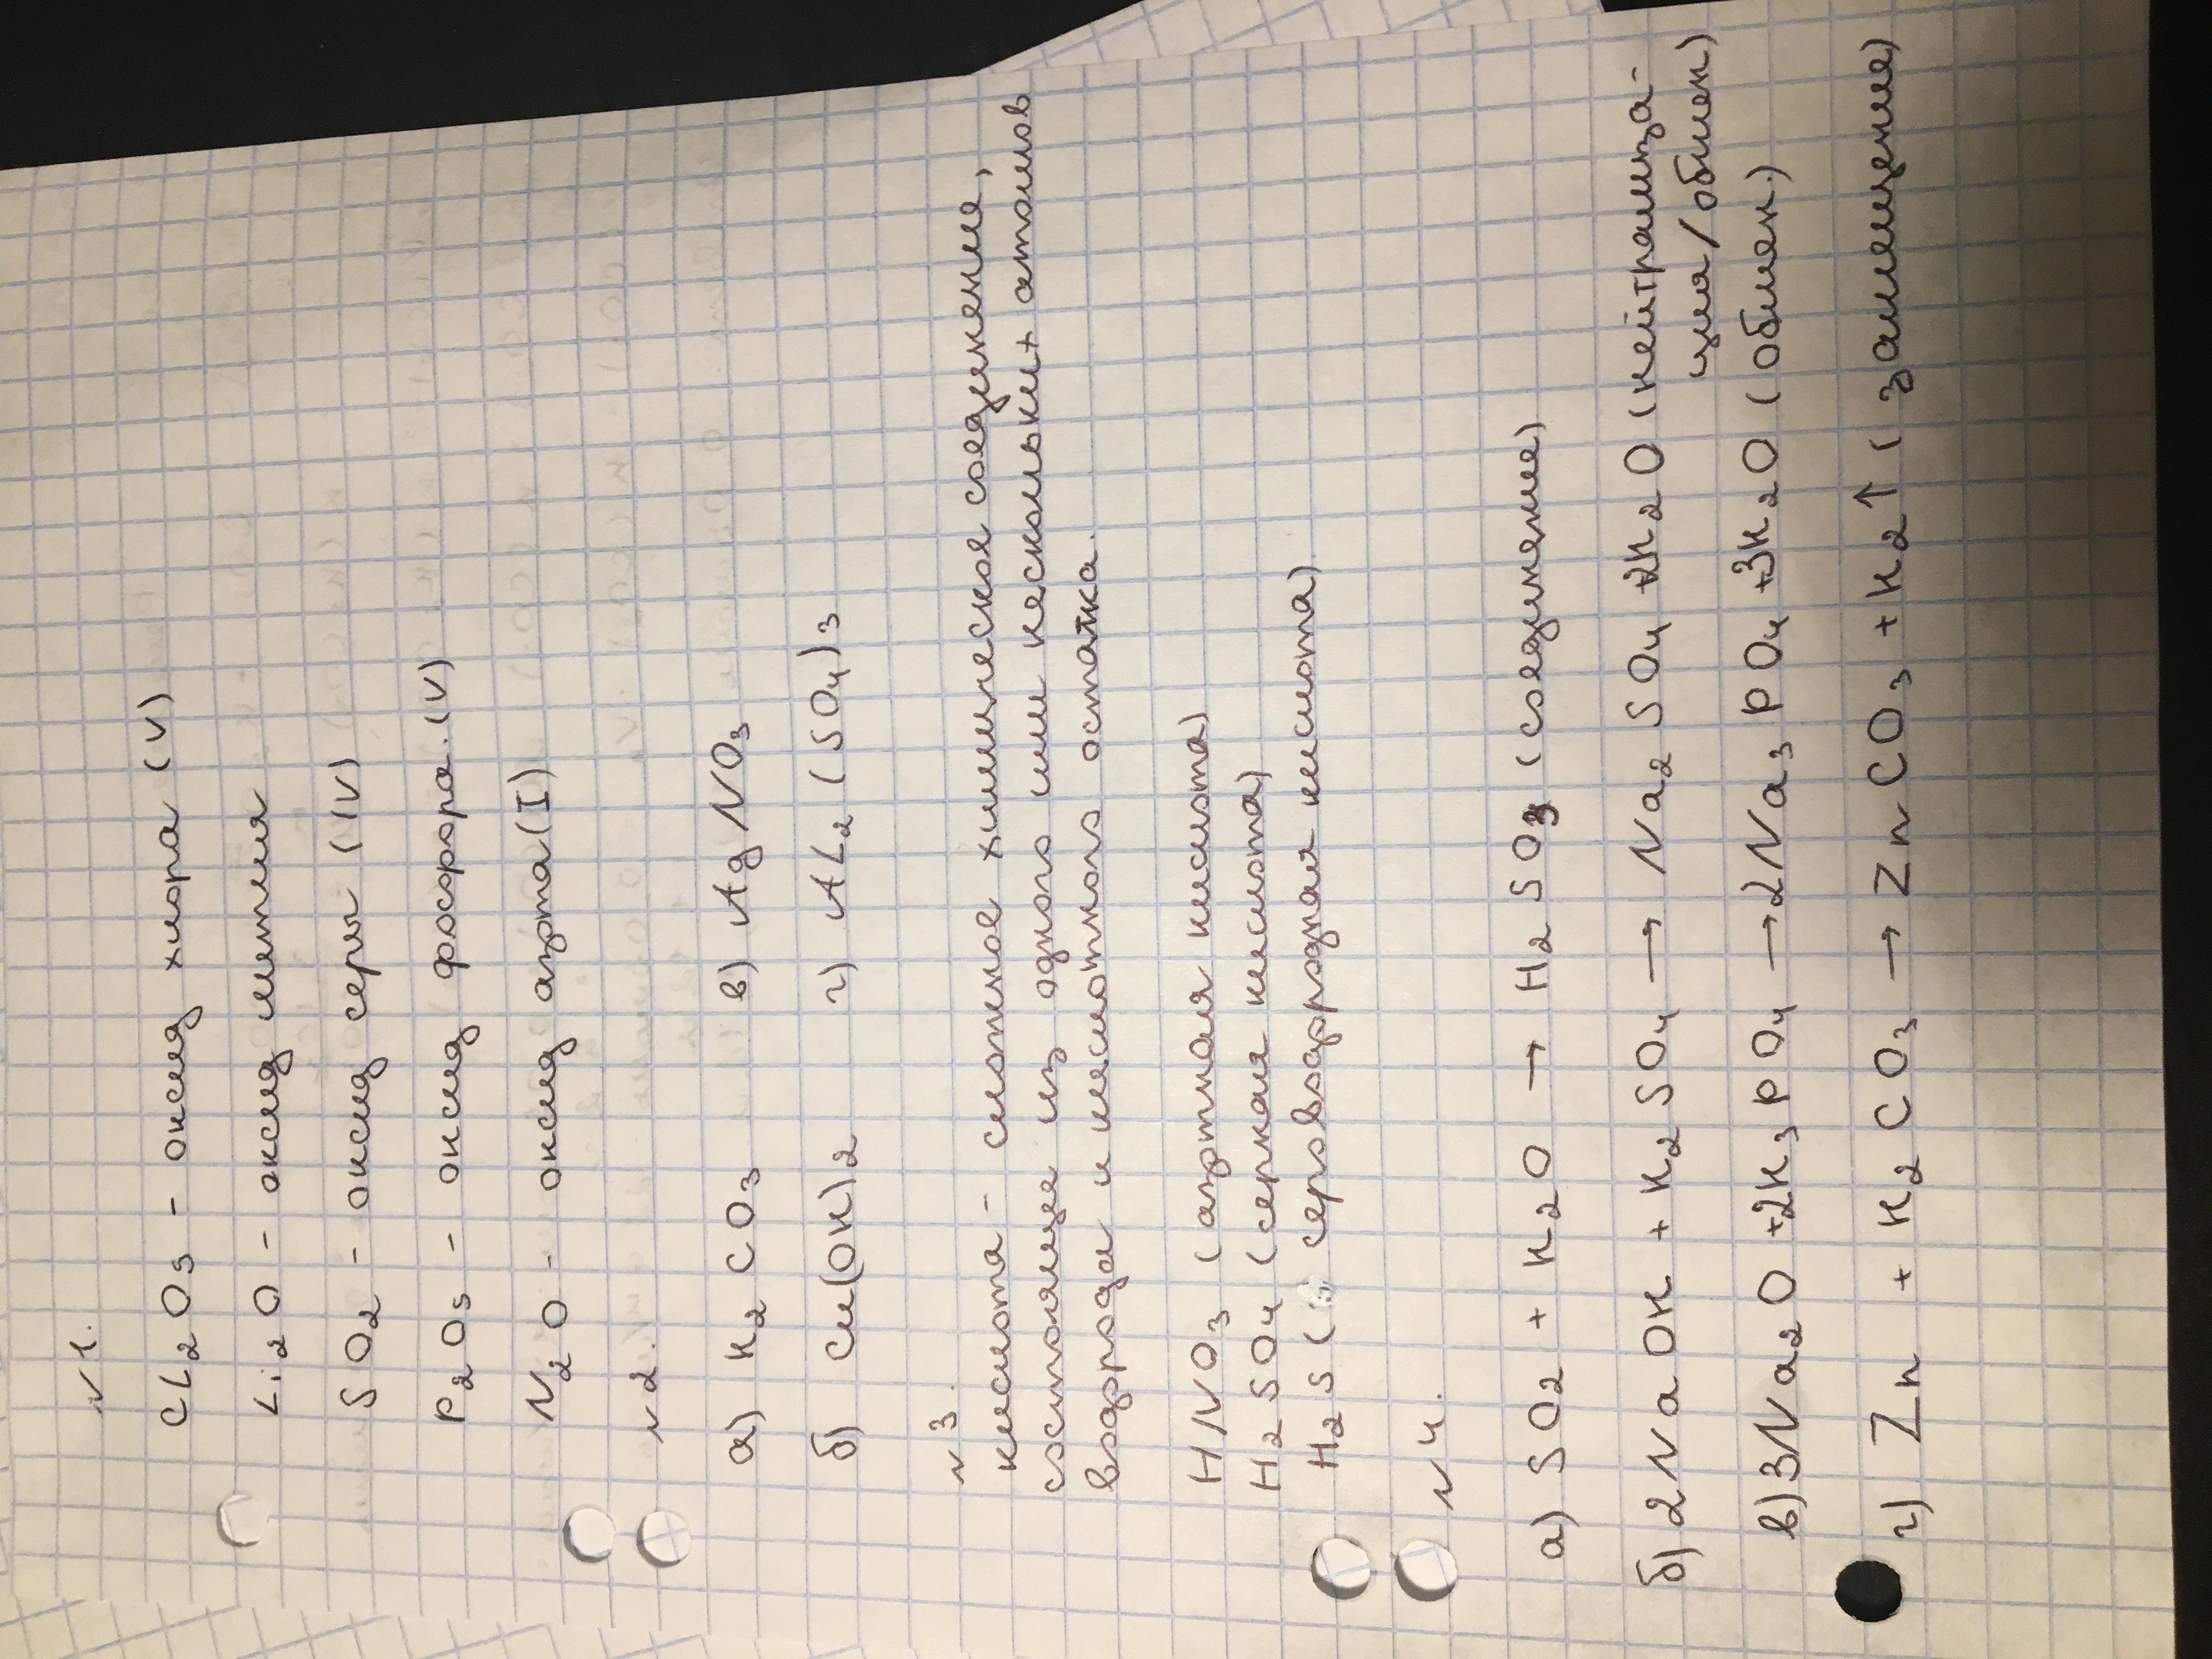 №1.
CL₂O₅ - оксид хлора (V)
Li₂O - оксид лития
SO₂ - оксид серы (IV)
P₂O₅ - оксид фосфора. (V)
N₂O - оксид азота (I)
№2.
а) H₂CO₃ в) AgNO₃
б) Cu(OH)₂ г) AL₂(SO₄)₃
№3.
кислота - сложное химическое соединение,
состоящее из одного или нескольких атомов
водорода и кислотного остатка.
HNO₃ (азотная кислота)
H₂SO₄ (серная кислота)
H₂S (сероводородная кислота)
№4.
а) SO₂ + H₂O → H₂SO₃ (соединение)
б) 2NaOH + H₂SO₄ → Na₂SO₄ + 2H₂O (нейтрализа-
ция/обмен)
в) 3Na₂O + 2H₃PO₄ → 2Na₃PO₄ + 3H₂O (обмен)
г) Zn + H₂CO₃ → ZnCO₃ + H₂↑ (замещение)